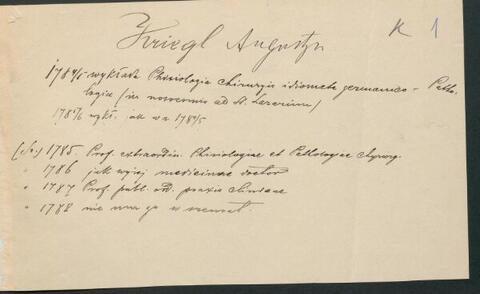 Kriegl Augustyn K 1
1784/5 wykłada Phisiologia chirurgis idiomate germanico - Patho-
logia (in nosocomio ad St. Lazarum)
1785/6 wykł. jak w r. 1784/5
1785 Prof. extraordin. Phisiologiae et Pathologiae chyrurg.
" 1786 jak wyżej medicinae doctor
" 1787 Prof. publ. ord. praxis clinicae
" 1788 nie ma go w